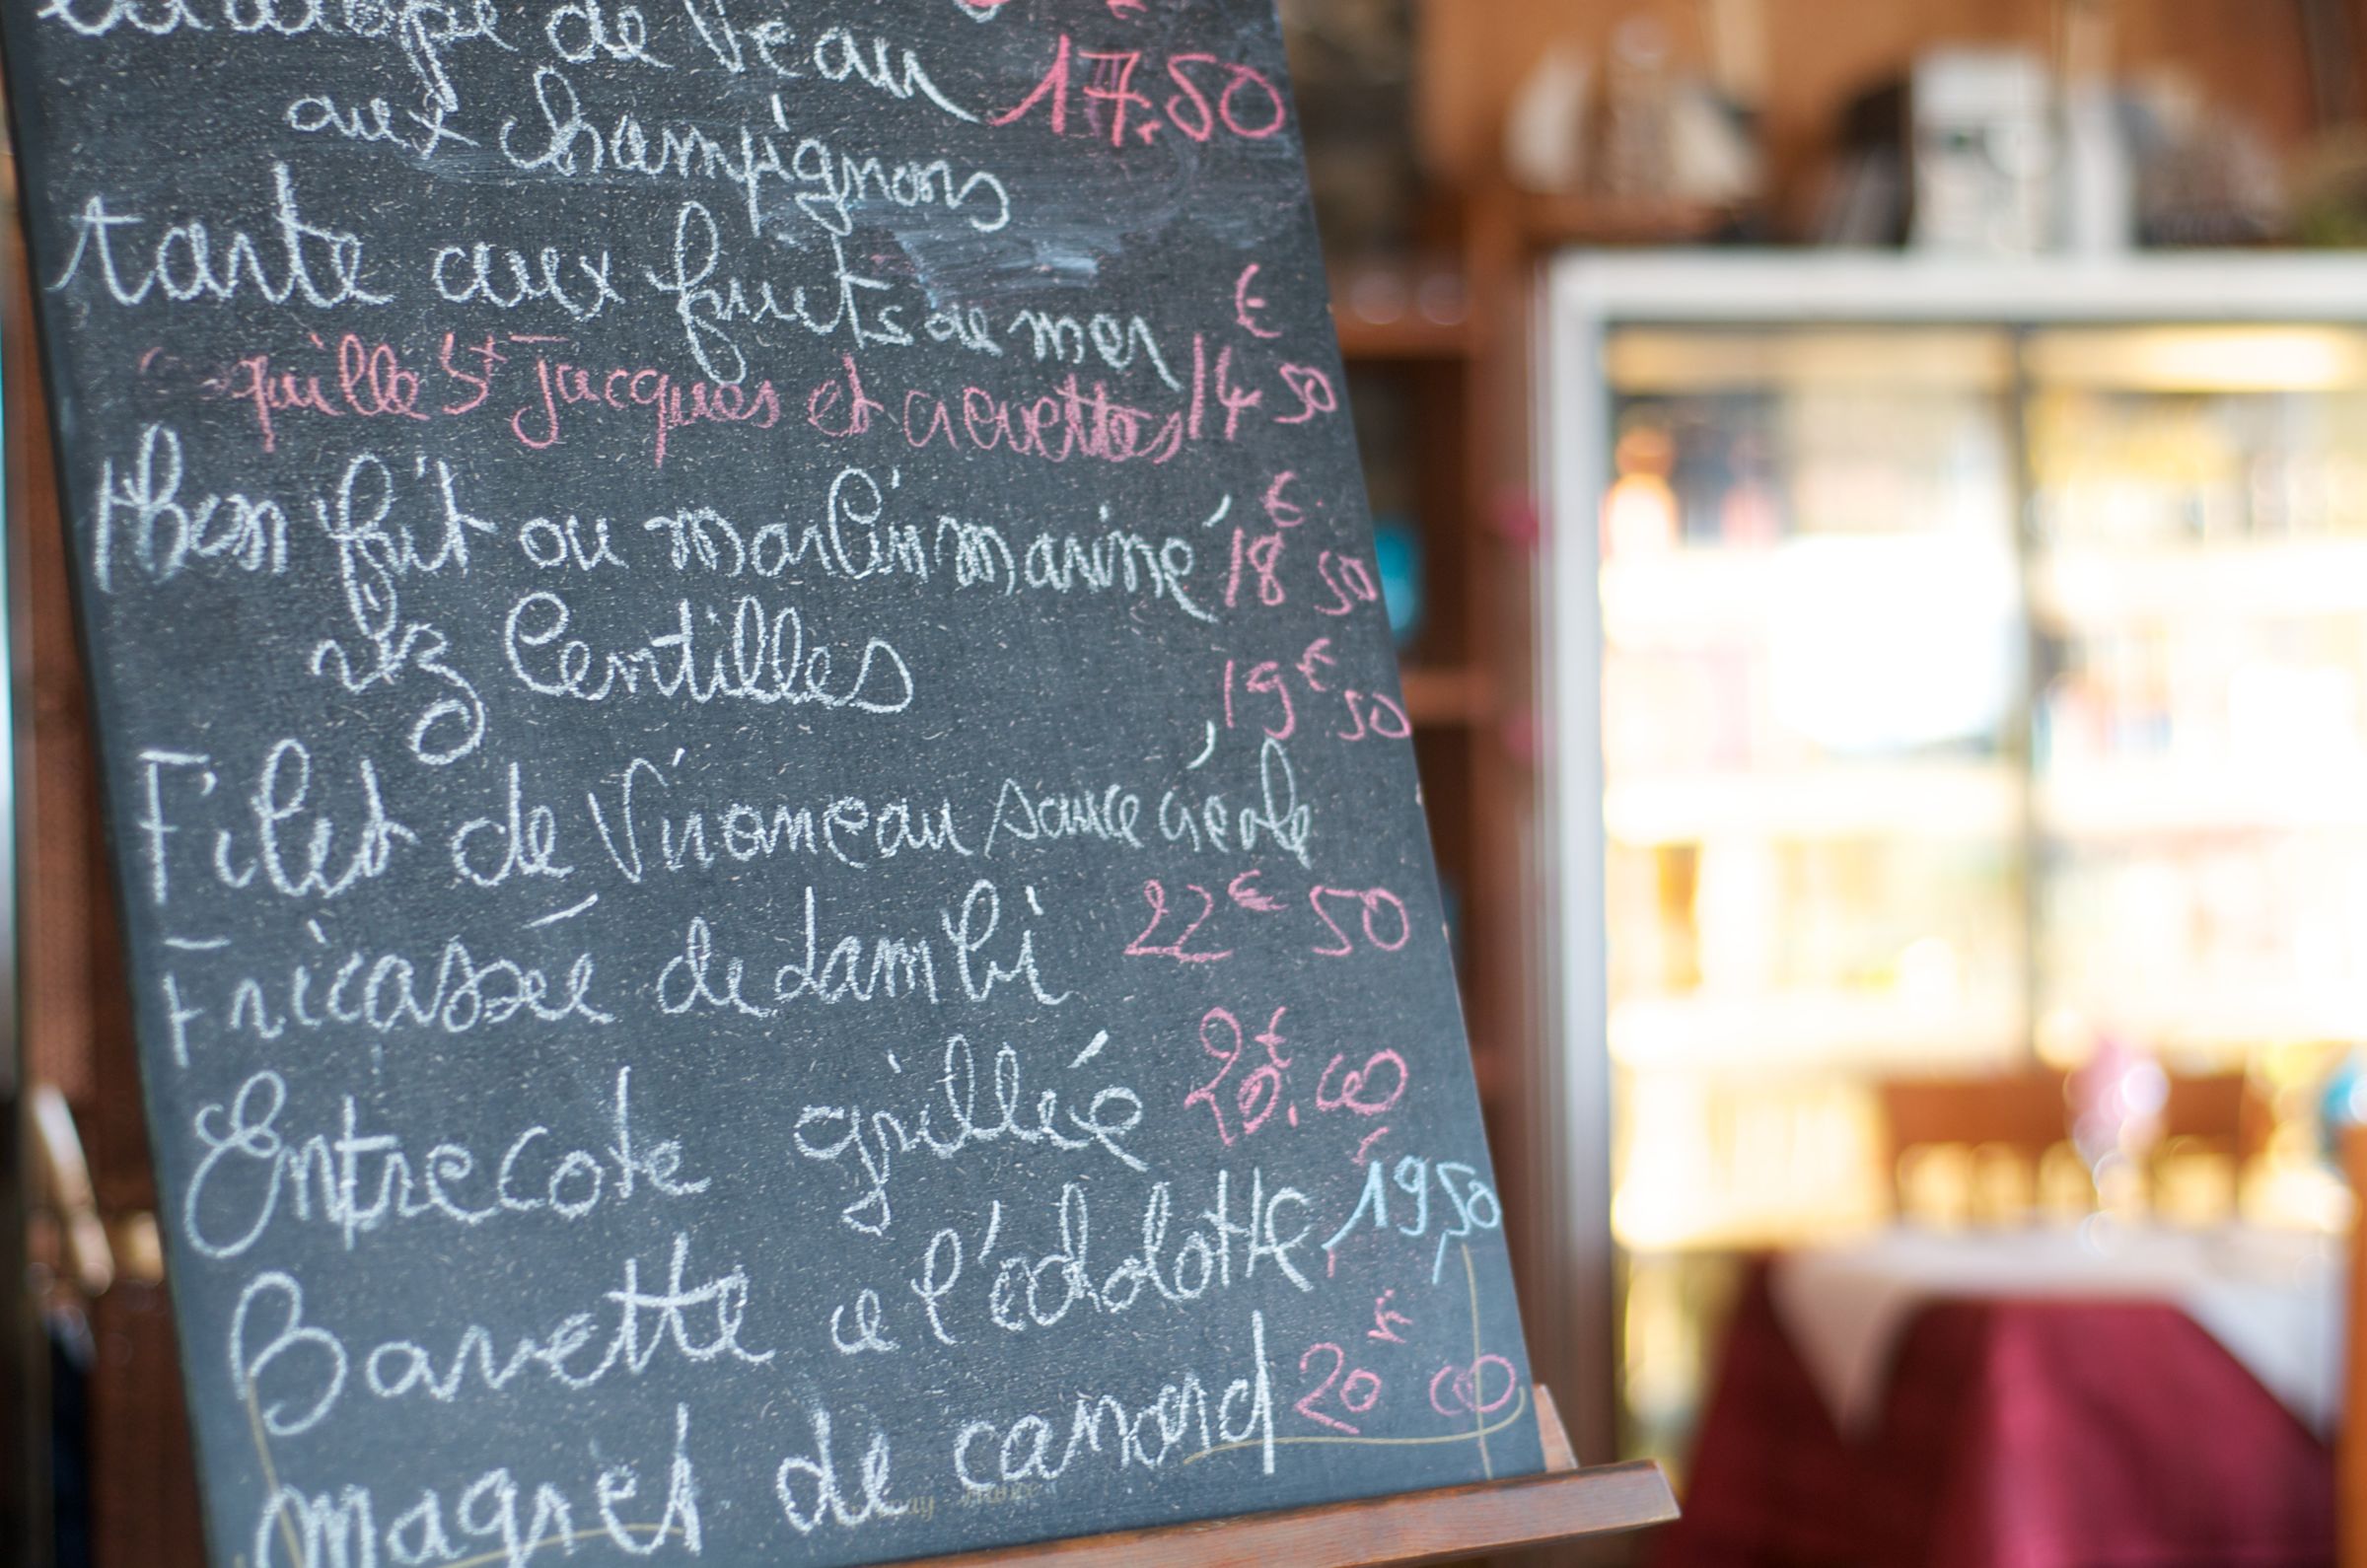 de Veau 17.50
aux champignons
tarte aux fruits de mer €
quille St Jacques et crevettes 14 50
thon frit ou marlin mariné € 18 50
riz lentilles 19 € 50
Filet de Vivaneau sauce créole
Fricassée de Lambi 22 € 50
Entrecote grillée 20 €.00
Bavette a l'échalotte 19,50
magret de canard 20 € 00